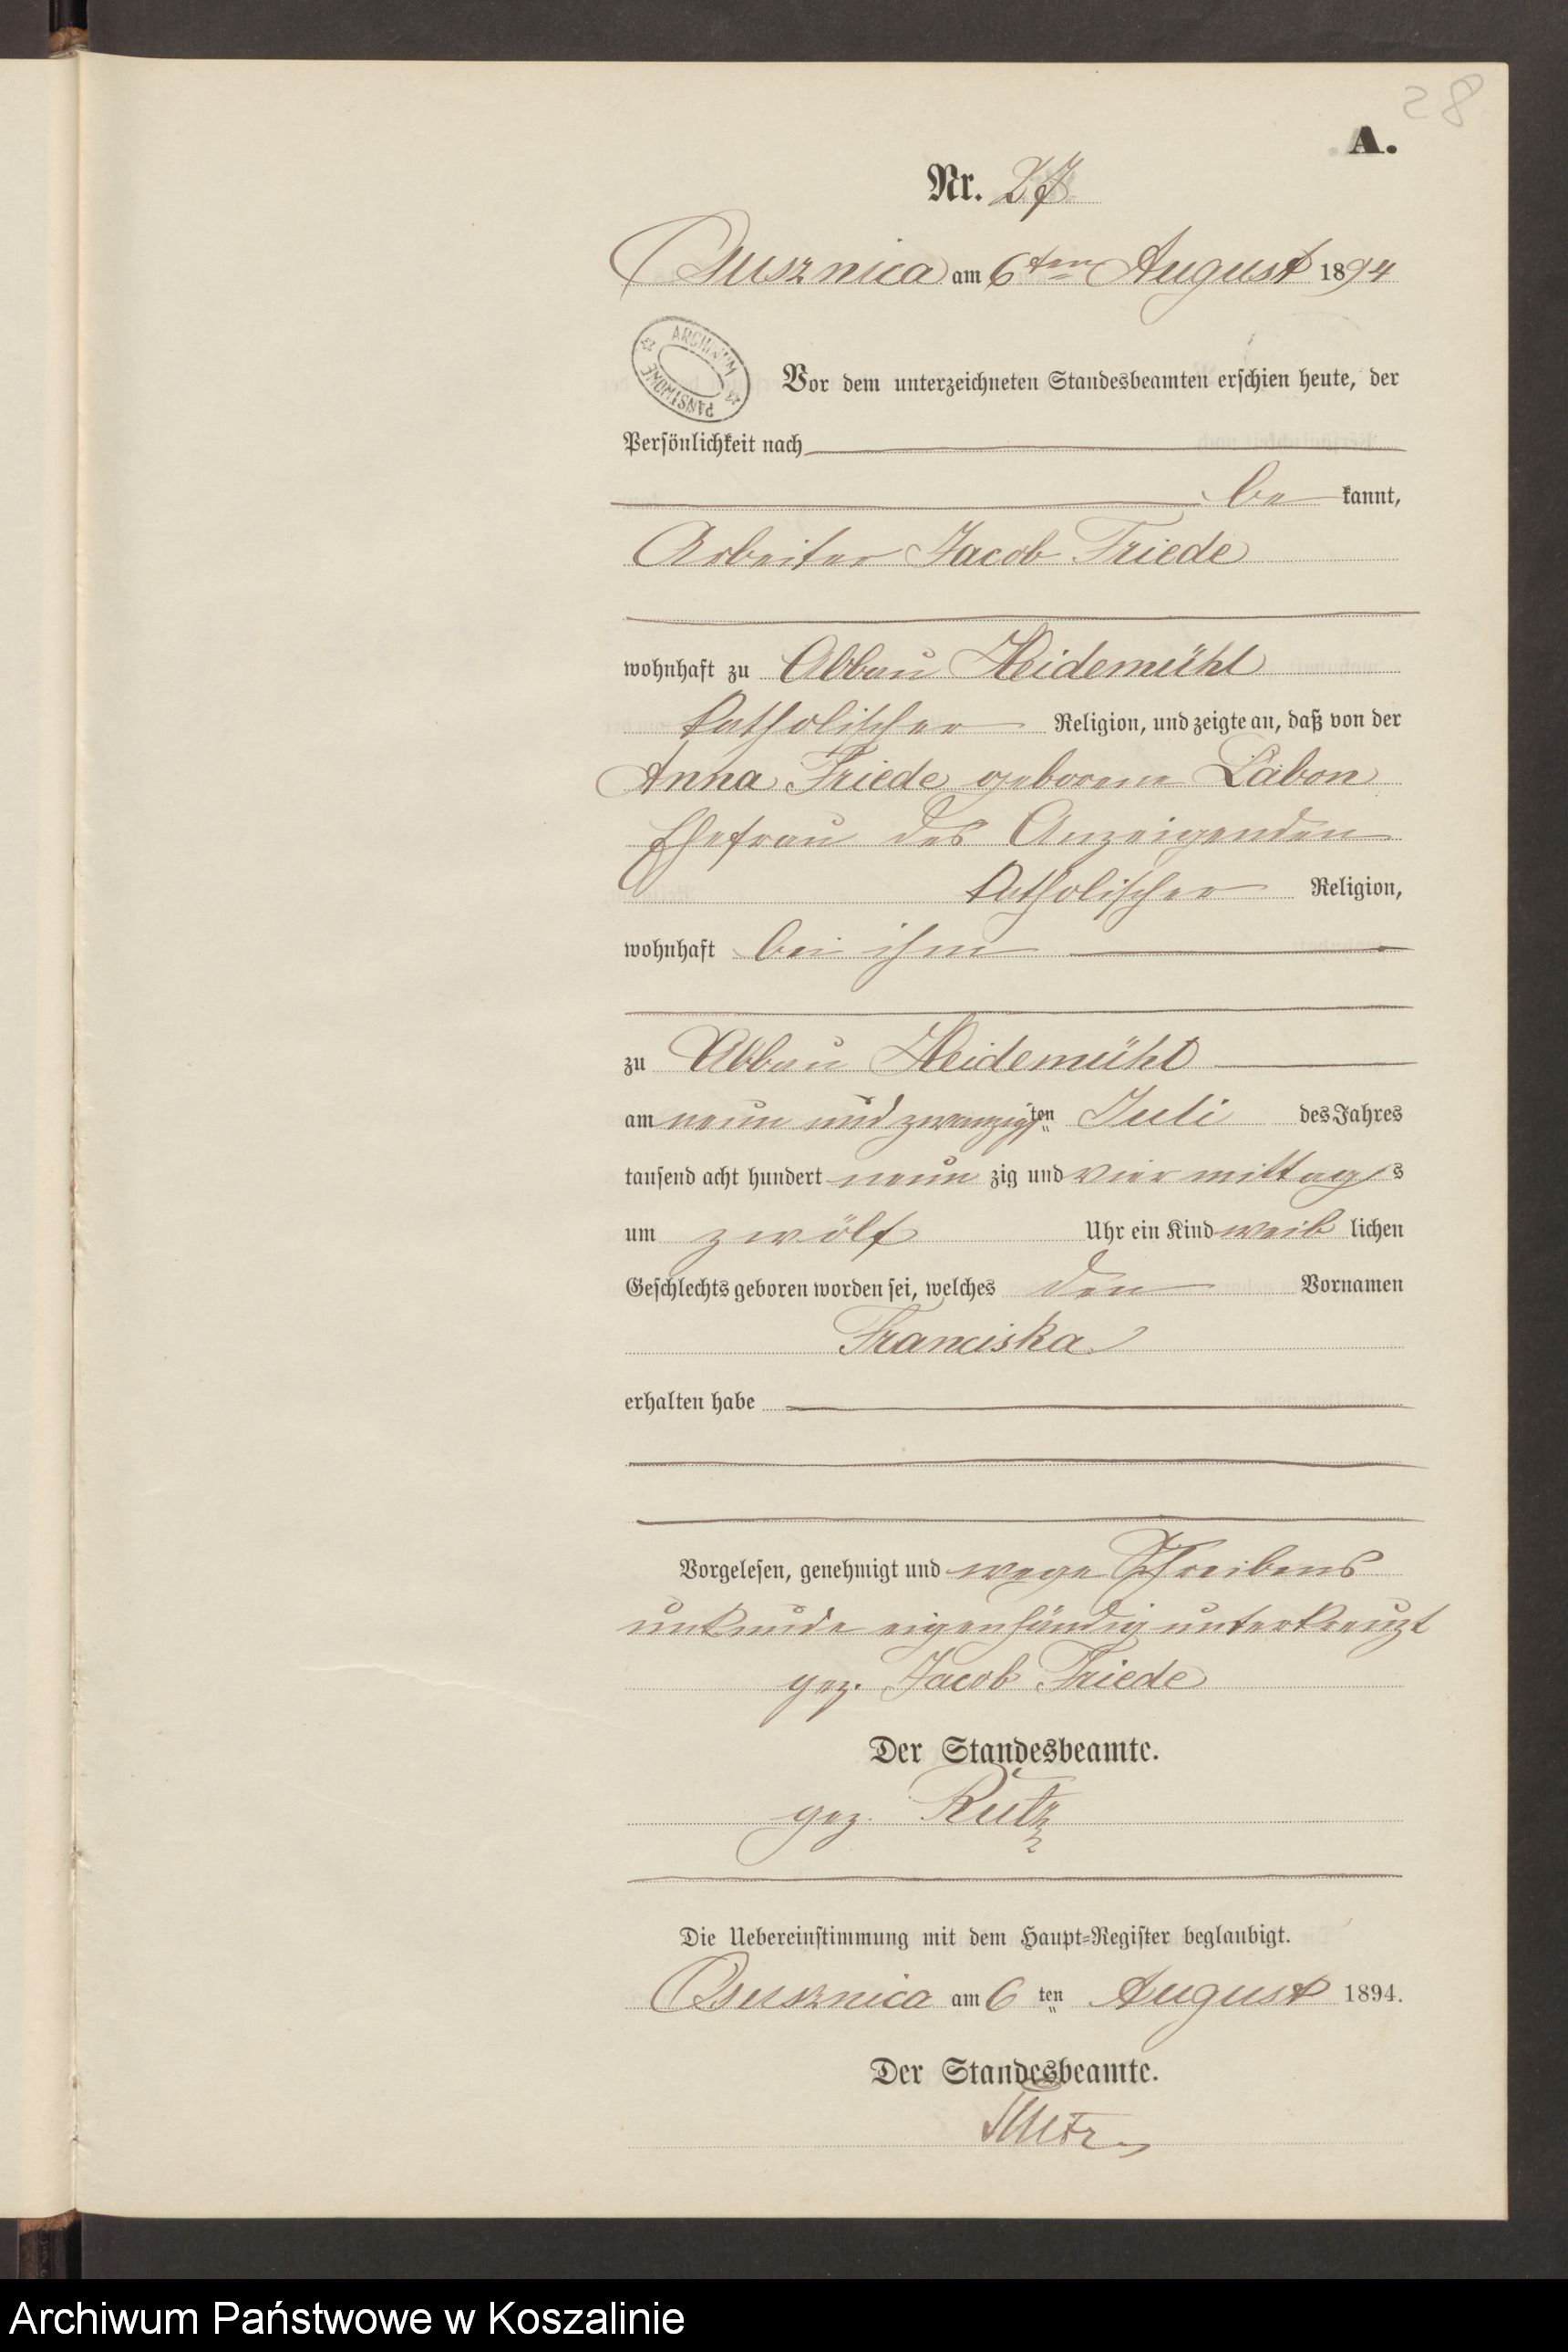 28
A.
Nr. 27
Ossusznica am 6ten August 1894
ARCHIWUM PAŃSTWOWE
Vor dem unterzeichneten Standesbeamten erschien heute, der
Persönlichkeit nach
be kannt,
Arbeiter Jacob Friede
wohnhaft zu Abbau Heidemühl
katholischer Religion, und zeigte an, daß von der
Anna Friede geborene Labon
Ehefrau des Anzeigenden
katholischer Religion,
wohnhaft bei ihm
zu Abbau Heidemühl
am neun und zwanzigsten Juli des Jahres
tausend acht hundert neun zig und vier mittags
um zwölf Uhr ein Kind weib lichen
Geschlechts geboren worden sei, welches den Vornamen
Franciska
erhalten habe
Vorgelesen, genehmigt und wege Schreibens
unkunde eigenhändig unterkreuzt
gez. Jacob Friede
Der Standesbeamte.
gez. Rutz
Die Uebereinstimmung mit dem Haupt-Register beglaubigt.
Ossusznica am 6 ten August 1894.
Der Standesbeamte.
Rutz
Archiwum Państwowe w Koszalinie